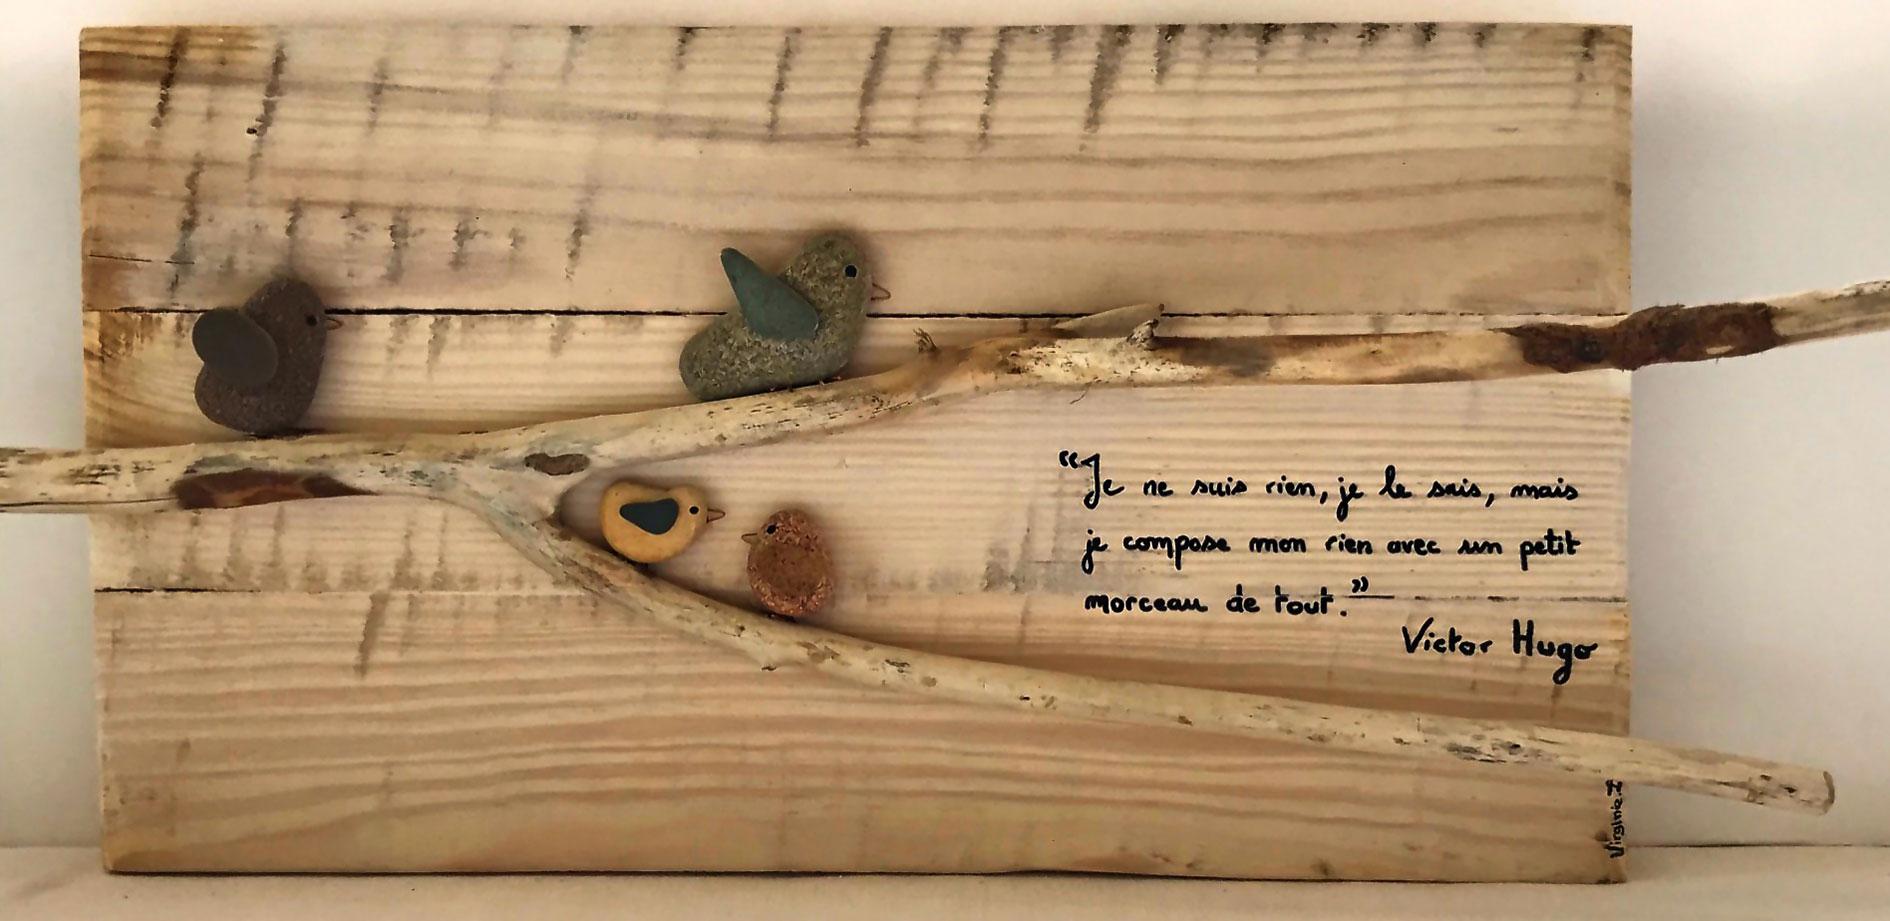 “Je ne suis rien, je le sais, mais
je compose mon rien avec un petit
morceau de tout.”
Victor Hugo
Virginie.Z